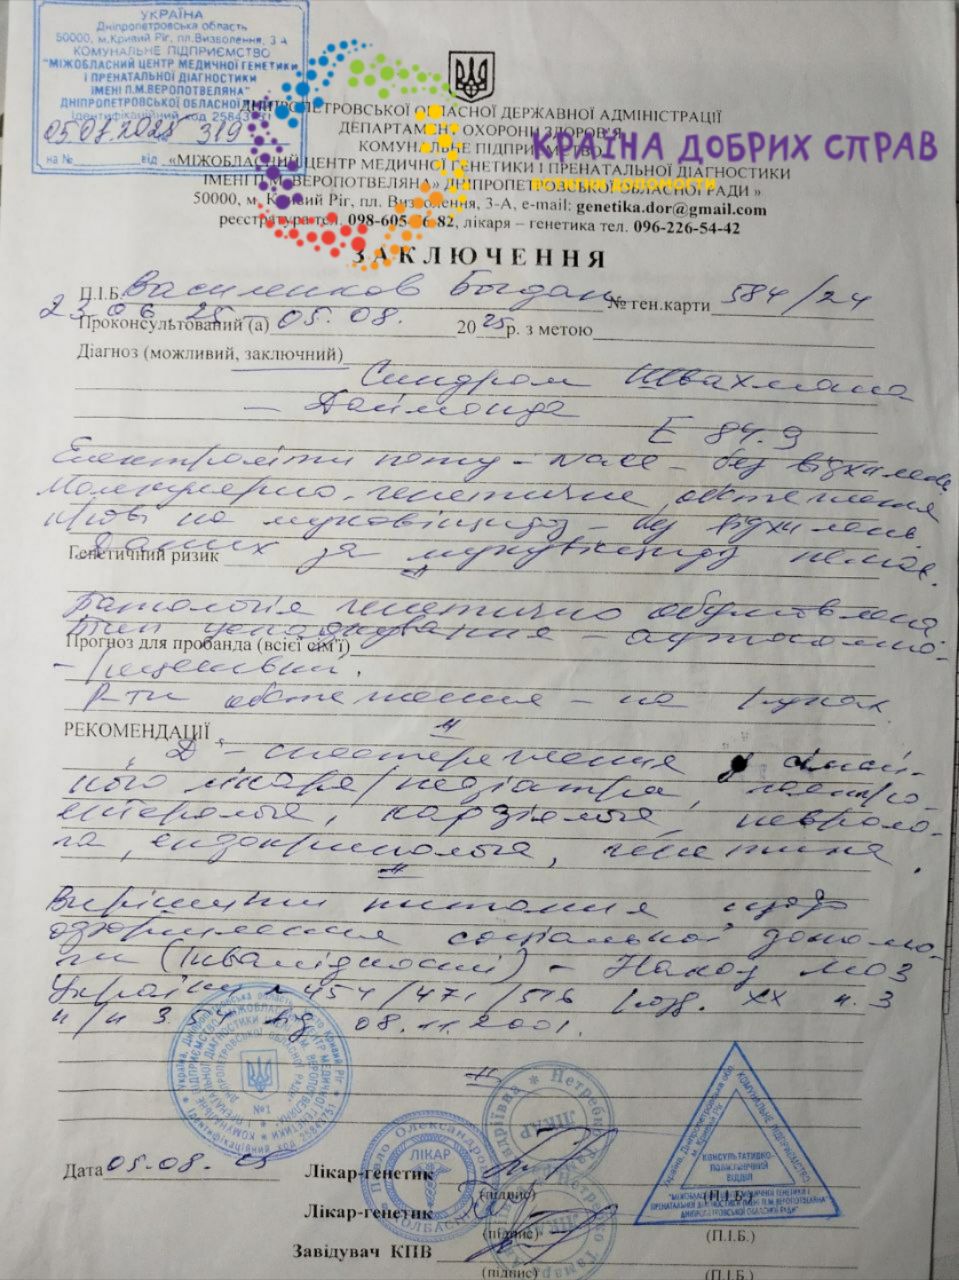 УКРАЇНА
Дніпропетровська область
50000, м.Кривий Ріг, пл.Визволення, 3 А
КОМУНАЛЬНЕ ПІДПРИЄМСТВО
"МІЖОБЛАСНИЙ ЦЕНТР МЕДИЧНОЇ ГЕНЕТИКИ
І ПРЕНАТАЛЬНОЇ ДІАГНОСТИКИ
ІМЕНІ П.М.ВЕРОПОТВЕЛЯНА"
ДНІПРОПЕТРОВСЬКОЇ ОБЛАСНОЇ
Ідентифікаційний код
05.08.2025 319
на № від
ДНІПРОПЕТРОВСЬКОЇ ОБЛАСНОЇ ДЕРЖАВНОЇ АДМІНІСТРАЦІЇ
ДЕПАРТАМЕНТ ОХОРОНИ ЗДОРОВ'Я
КОМУНАЛЬНЕ ПІДПРИЄМСТВО
КРАЇНА ДОБРИХ СПРАВ
«МІЖОБЛАСНИЙ ЦЕНТР МЕДИЧНОЇ ГЕНЕТИКИ І ПРЕНАТАЛЬНОЇ ДІАГНОСТИКИ
ІМЕНІ П.М. ВЕРОПОТВЕЛЯНА» ДНІПРОПЕТРОВСЬКОЇ ОБЛАСНОЇ РАДИ »
ДОПОМОГТИ
50000, м. Кривий Ріг, пл. Визволення, 3-А, e-mail: genetika.dor@gmail.com
реєстратура тел. лікаря – генетика тел. 096-226-54-42
ЗАКЛЮЧЕННЯ
П.І.Б. Василенков Богдан № ген.карти 584/24
23.06.25 –
Проконсультований (а) 05.08. 2025р. з метою
Діагноз (можливий, заключний)
Синдром Швахмана
– Даймонда
E 84.9
Електроліти поту – NaCl – без відхилень
Молекулярно-генетичне обстеження
крові на муковісцидоз – без відхилень
Генетичний ризик Даних за муковісцидоз немає.
Патологія генетично обумовлена
Тип успадкування – аутосомно-
Прогноз для пробанда (всієї сім'ї)
– рецесивний.
обстеження – на руках
РЕКОМЕНДАЦІЇ
"Д" – спостереження у сімей-
ного лікаря/педіатра, гастро-
ентеролога, кардіолога, невроло-
га, ендокринолога, генетика.
Вирішити питання щодо
оформлення соціальної допомо-
ги (Інвалідності) – Наказ МОЗ
України № 454/471/516 розд. XX п. 3
п/п 3. від 08.11.2001.
Дата 05.08.25 Лікар-генетик
(підпис) (П.І.Б.)
Лікар-генетик
(підпис) (П.І.Б.)
Завідувач КПВ
(підпис) (П.І.Б.)
№1
ЛІКАР
ЛІКАР
КОНСУЛЬТАТИВНО-
ПОЛІКЛІНІЧНИЙ
ВІДДІЛ